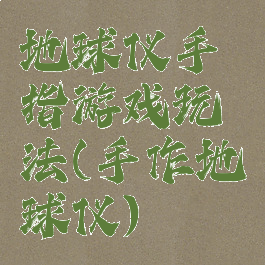 地球仪手
指游戏玩
法(手作地
球仪)